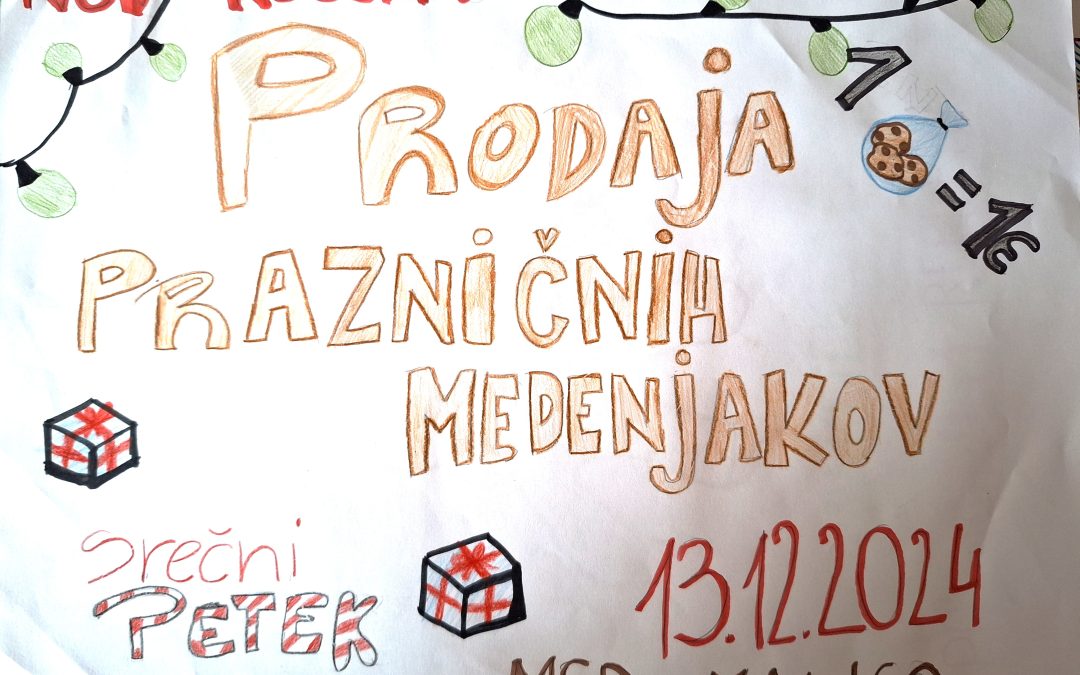 PRODAJA
1 = 1€
PRAZNIČNIH
MEDENJAKOV
Srečni
PETEK
13.12.2024